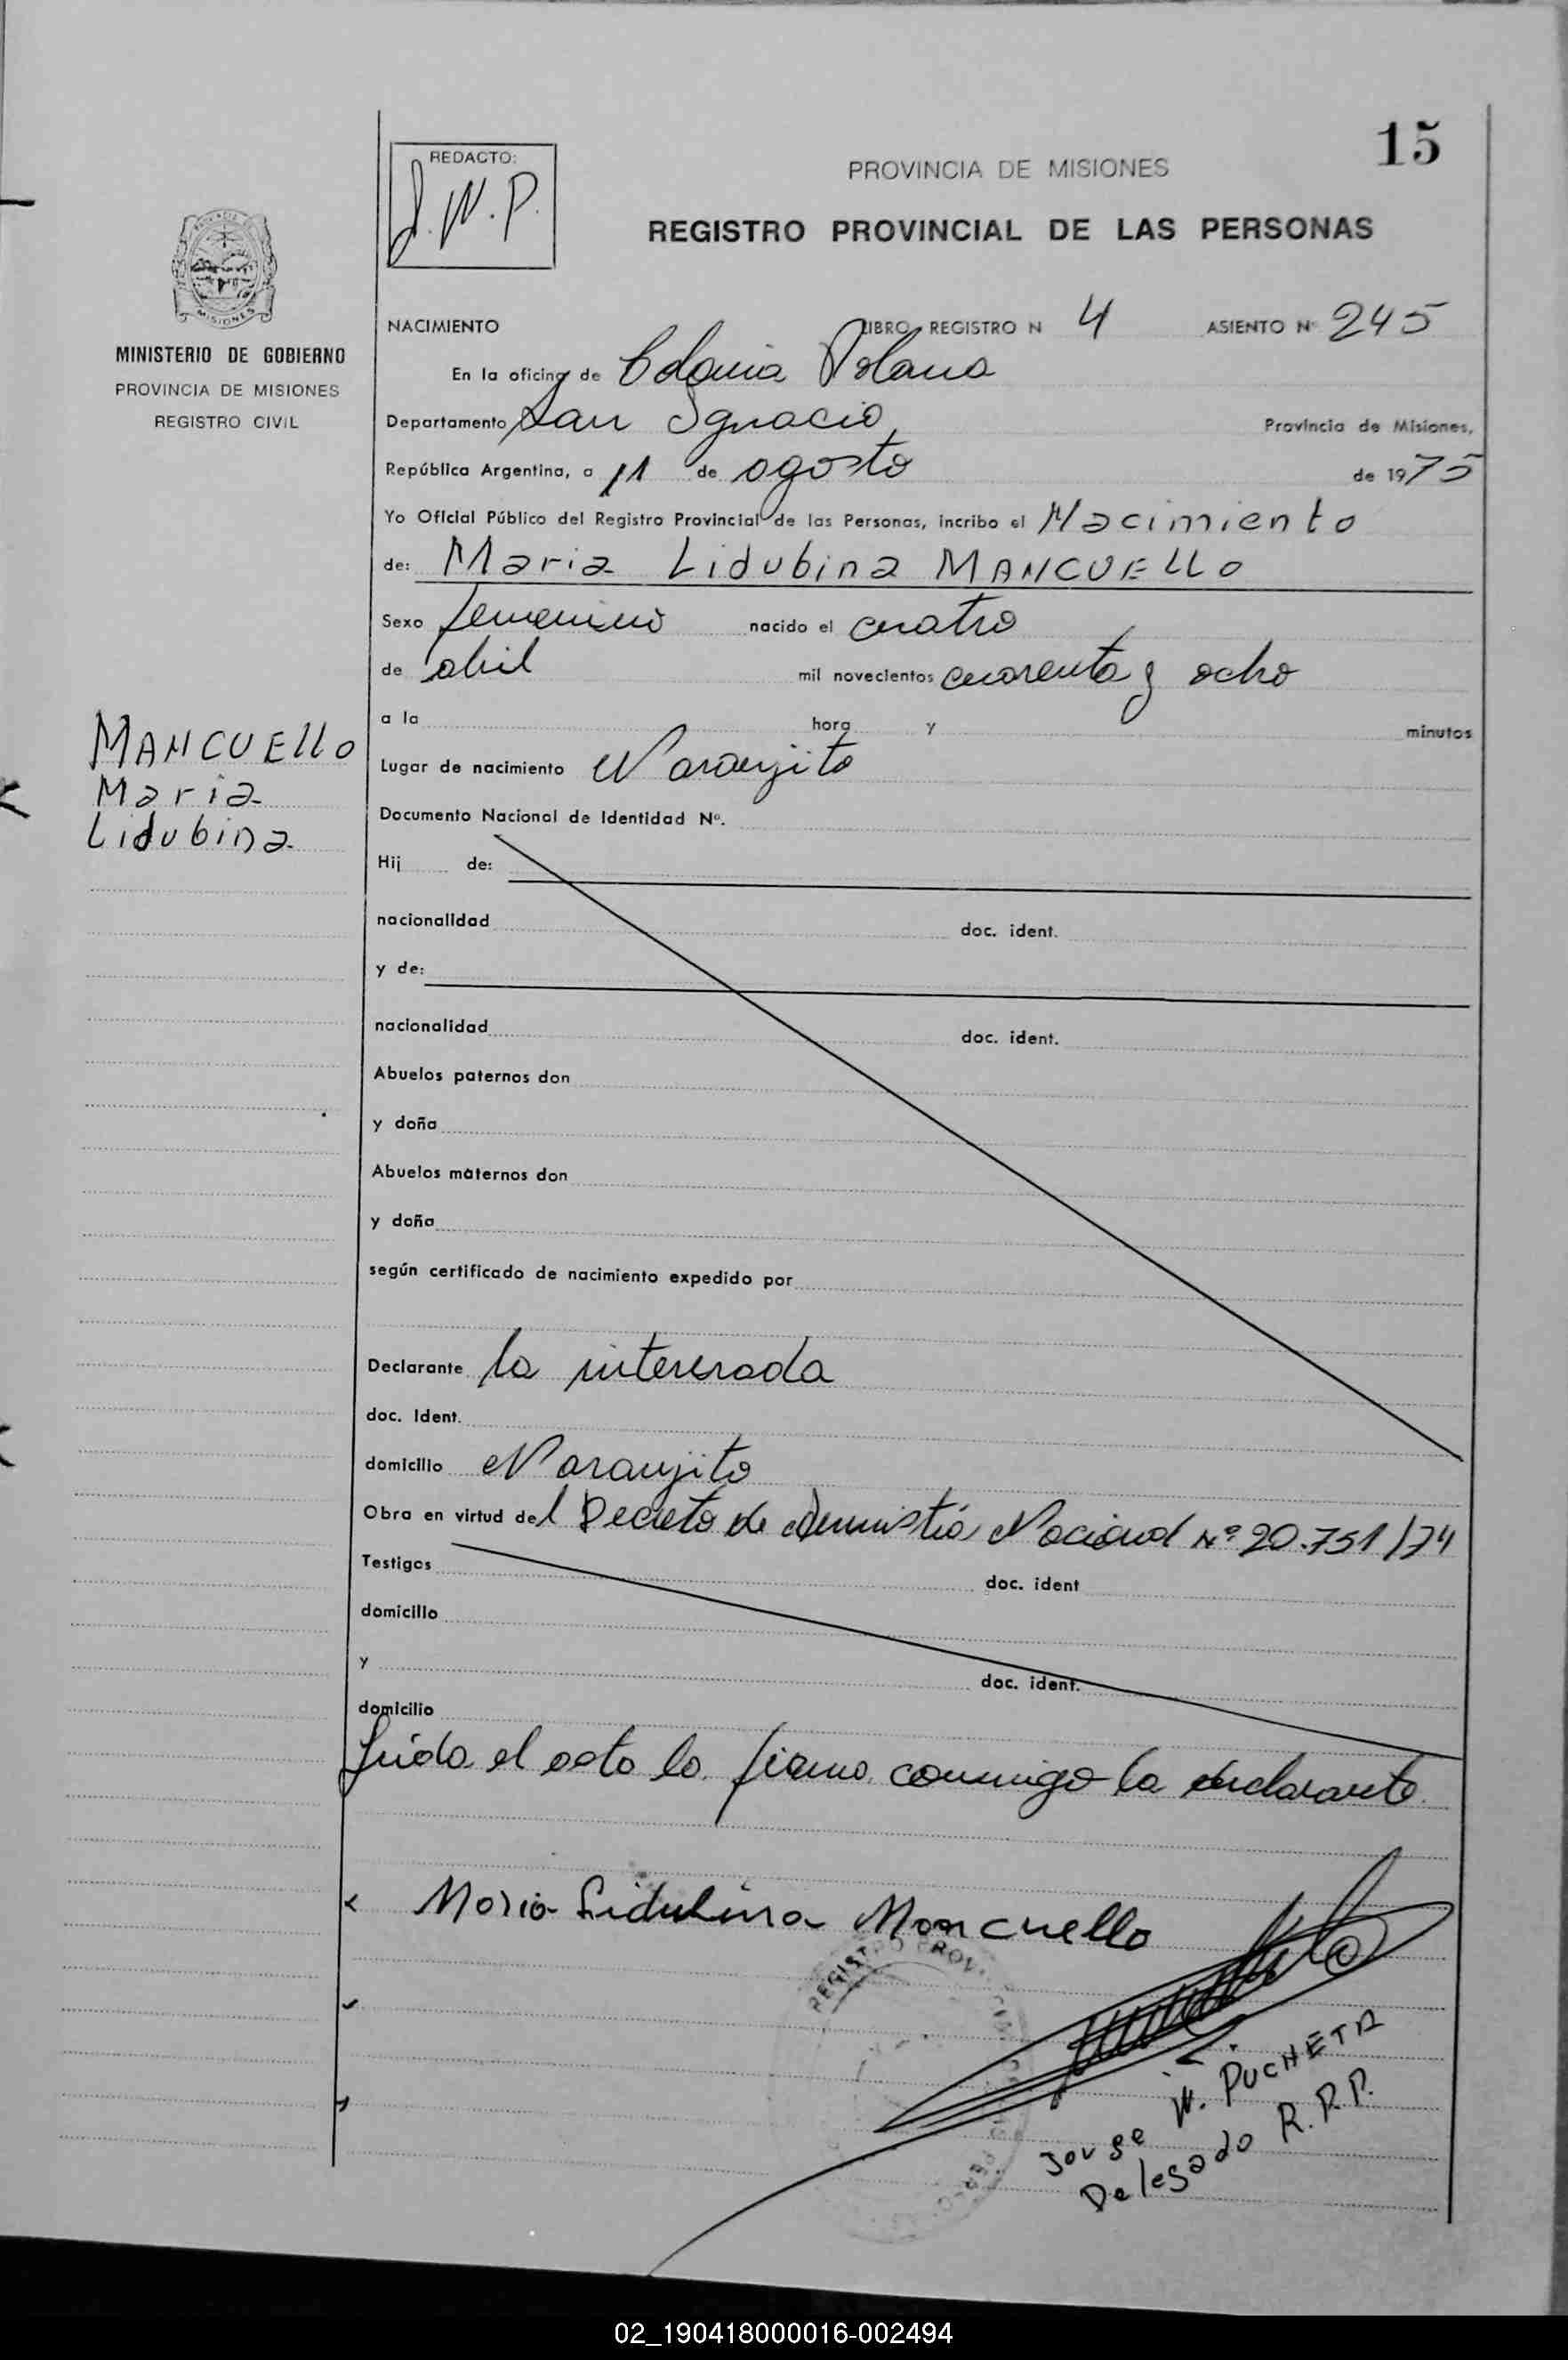 15
REDACTO:
J.W.P.
PROVINCIA DE MISIONES
REGISTRO PROVINCIAL DE LAS PERSONAS
MISIONES
MINISTERIO DE GOBIERNO
PROVINCIA DE MISIONES
REGISTRO CIVIL
NACIMIENTO LIBRO REGISTRO N 4 ASIENTO N° 245
En la oficina de Colonia Polana
Departamento San Ignacio, Provincia de Misiones,
República Argentina, a 11 de agosto de 1975
Yo Oficial Público del Registro Provincial de las Personas, incribo el Nacimiento
de: Maria Lidubina MANCUELLO
Sexo femenino nacido el cuatro
de abril mil novecientos cuarenta y ocho
a la hora y minutos
MANCUELLO
Maria
Lidubina
Lugar de nacimiento Naranjito
Documento Nacional de Identidad Nº.
Hij de:
nacionalidad doc. ident.
y de:
nacionalidad doc. ident.
Abuelos paternos don
y doña
Abuelos maternos don
y doña
según certificado de nacimiento expedido por
Declarante la interesada
doc. Ident.
domicilio Naranjito
Obra en virtud del Decreto de Amnistía Nacional Nº 20.751/74
Testigos doc. ident
domicilio
y doc. ident.
domicilio
leída el acta la firma conmigo la declarante.
Maria Lidubina Mancuello
REGISTRO PROV
Jorge W. PUCHETA
Delegado R.P.P.
02_190418000016-002494